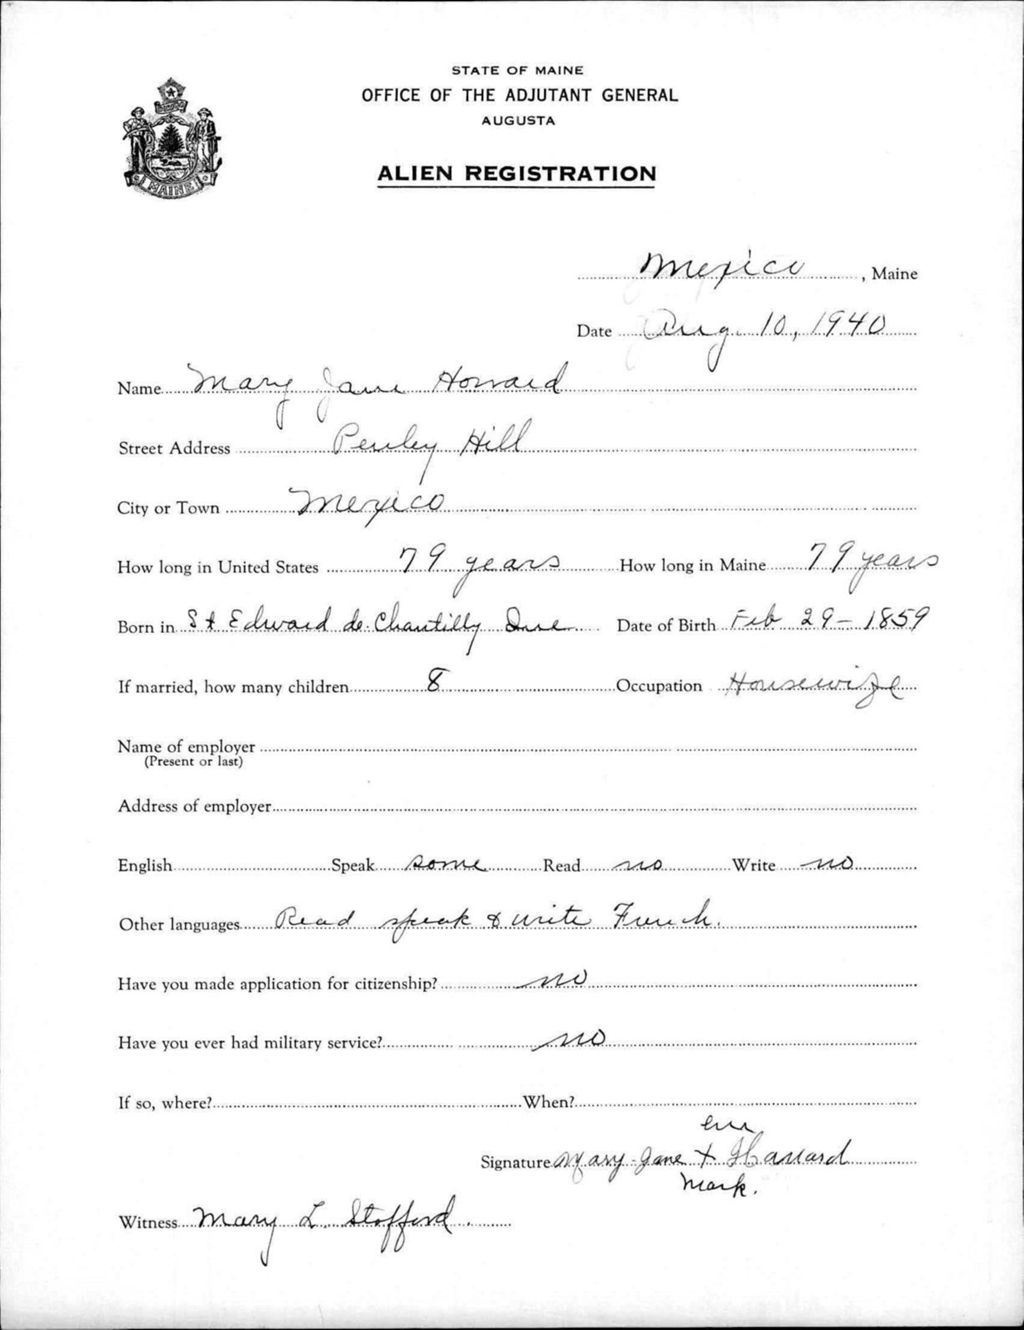 STATE OF MAINE
OFFICE OF THE ADJUTANT GENERAL
AUGUSTA
ALIEN REGISTRATION
MAINE
Mexico, Maine
Date Aug. 10, 1940
Name Mary Jane Howard
Street Address Penley Hill
City or Town Mexico
How long in United States 79 years How long in Maine 79 years
Born in St Edward de Chantilly Que Date of Birth Feb 29 - 1859
If married, how many children 8 Occupation Housewife
Name of employer
(Present or last)
Address of employer
English Speak some Read no Write no
Other languages Read speak & write French.
Have you made application for citizenship? no
Have you ever had military service? no
If so, where? When?
Signature Mary-Jane X
Mark.
Witness Mary L. Stofford.